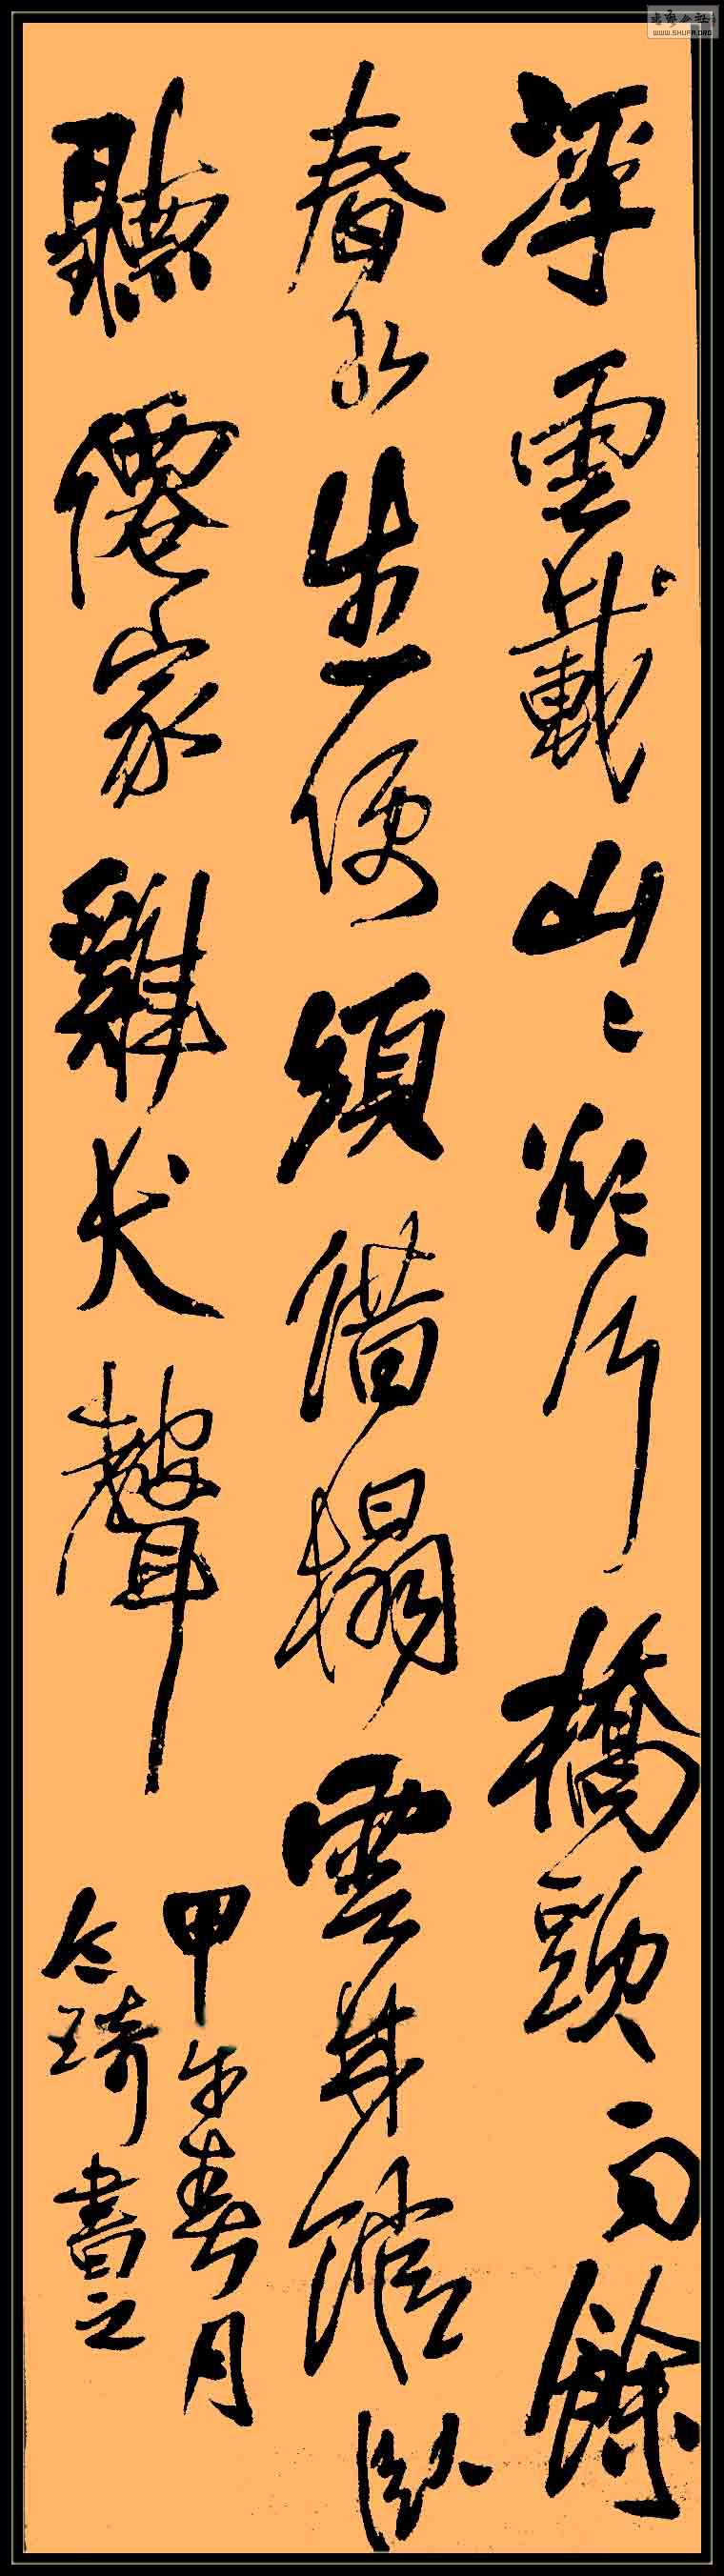 浮雲載山〻欲行橋頭雨餘
春水生便須借榻雲林館卧
聽僊家雞犬聲
甲午春月
令琦書之
WWW.SHUFA.ORG